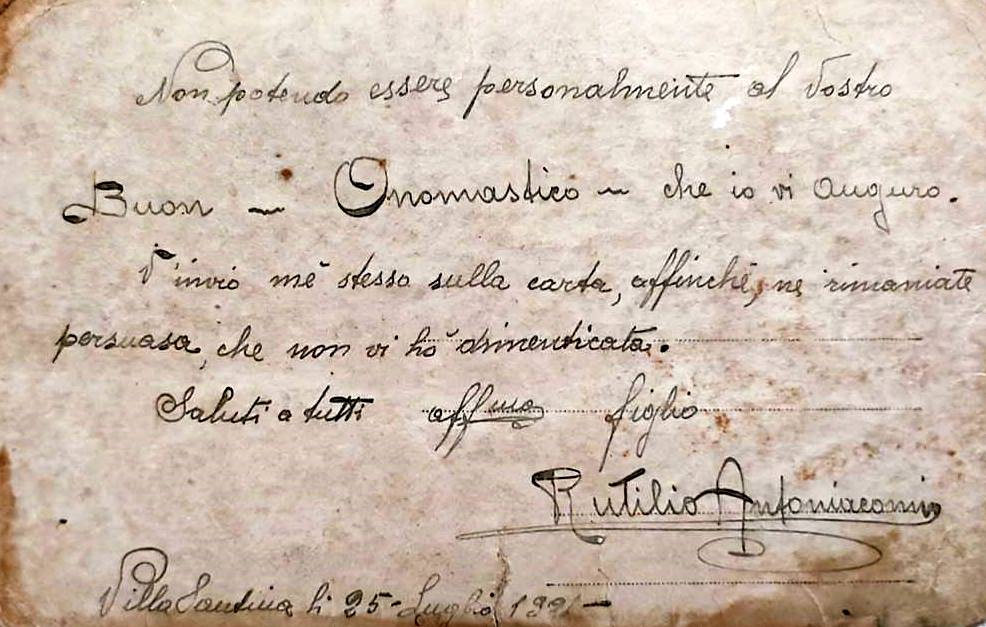 Non potendo essere personalmente al Vostro
Buon - Onomastico ~ che io vi auguro.
V'invio mè stesso sulla carta, affinchè, ne rimaniate
persuasa, che non vi hò dimenticata.
Saluti a tutti affmo figlio
Rutilio Antoniacomi
Villa Santina li 25 - Luglio